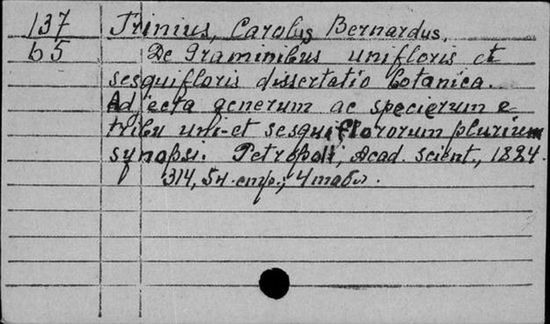 137 Trinius, Carolus Bernardus.
b5 De Graminibus unifloris et
sesquifloris dissertatio botanica.
Adjecta generum ac specierum e
tribu uni-et sesquiflororum plurium
synopsi. Petropoli, Acad. scient., 1824.
314, 5н. стр.; 4 табл.